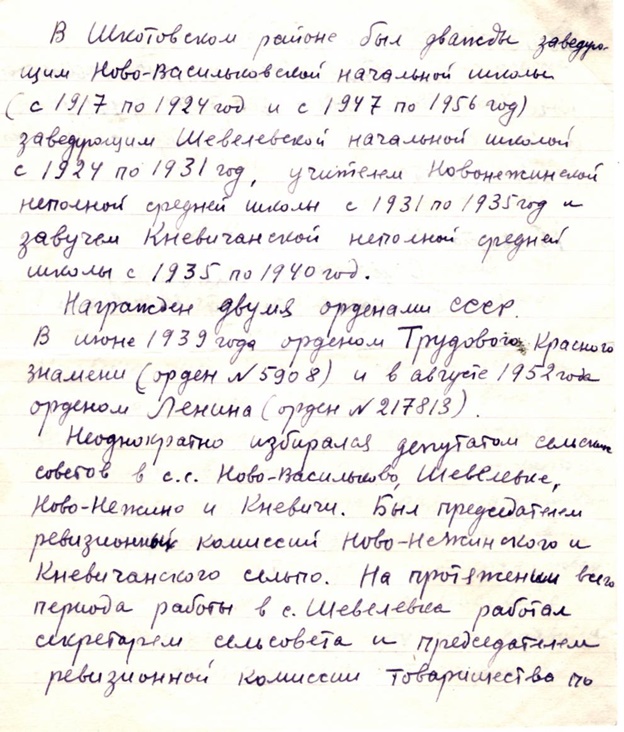 В Шкотовском районе был дважды заведую-
щим Ново-Васильковской начальной школы
(с 1917 по 1924 год и с 1947 по 1956 год)
заведующим Шевелевской начальной школой
с 1924 по 1931 год, учителем Новонежинской
неполной средней школы с 1931 по 1935 год и
завучем Кневичанской неполной средней
школы с 1935 по 1940 год.
Награжден двумя орденами СССР.
В июне 1939 года орденом Трудового Красного
знамени (орден № 5908) и в августе 1952 года
орденом Ленина (орден № 217813).
Неоднократно избирался депутатом сельских
советов в с.с. Ново-Васильково, Шевелевке,
Ново-Нежино и Кневичи. Был председателем
ревизионных комиссий Ново-Нежинского и
Кневичанского сельпо. На протяжении всего
периода работы в с. Шевелевка работал
секретарем сельсовета и председателем
ревизионной комиссии товарищества по